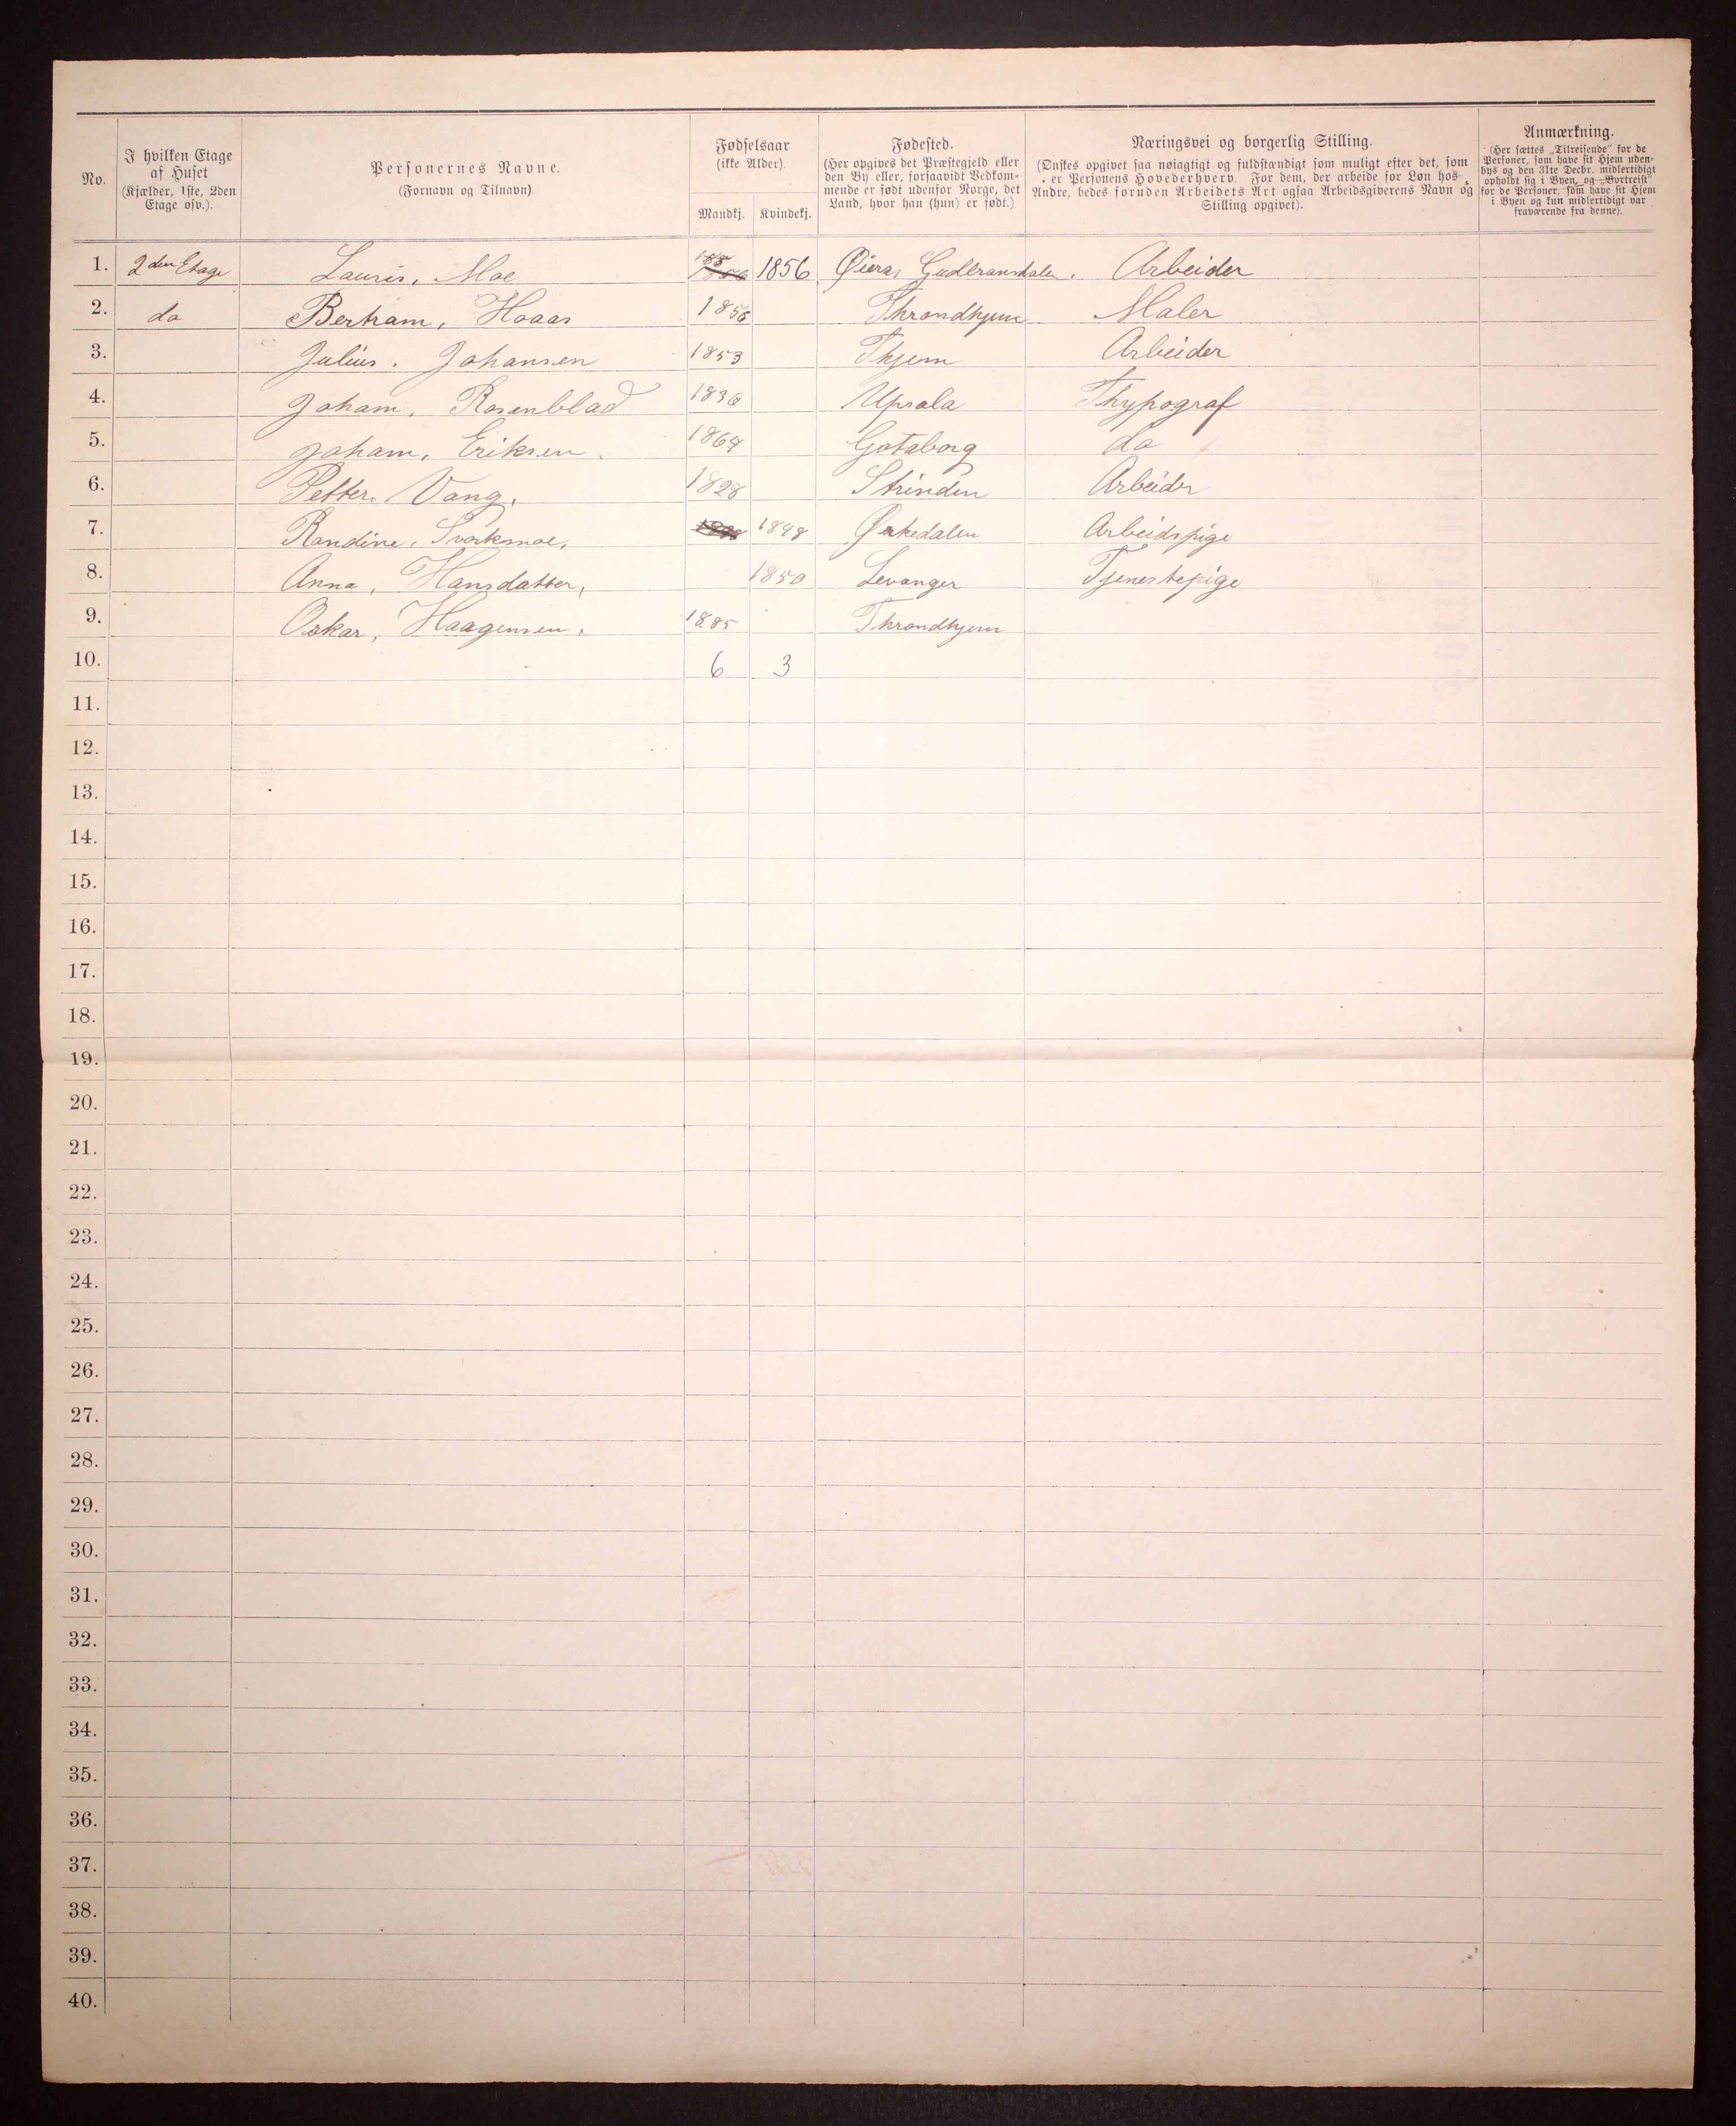 No.
I hvilken Etage
af Huset
(Kjælder, 1ste, 2den
Etage osv.).
Personernes Navne.
(Fornavn og Tilnavn).
Fødselsaar
(ikke Alder).
Mandkj. Kvindekj.
Fødested.
(Her opgives det Præstegjeld eller
den By eller, forsaavidt Vedkom-
mende er født udenfor Norge, det
Land, hvor han (hun) er født.)
Næringsvei og borgerlig Stilling.
(Ønskes opgivet saa nøiagtigt og fuldstændigt som muligt efter det, som
er Personens Hovederhverv. For dem, der arbeide for Løn hos
Andre, bedes foruden Arbeidets Art ogsaa Arbeidsgiverens Navn og
Stilling opgivet).
Anmærkning.
(Her sættes „Tilreisende“ for de
Personer, som have sit Hjem uden-
bys og den 31te Decbr. midlertidigt
opholdt sig i Byen, og „Bortreist“
for de Personer, som have sit Hjem
i Byen og kun midlertidigt var
fraværende fra denne).
1. 2den Etage Lauris, Moe 1856 Øiera, Gudbransdalen. Arbeider
2. do Bertram, Haaas 1856 Throndhjem Maler
3. Julius. Johansen 1853 Thjem Arbeider
4. Joham, Rosenblad 1836 Upsala Thypograf
5. Joham, Eriksen. 1864 Gotaborg do
6. Petter. Vang, 1828 Strinden Arbeider
7. Randine, Svorkmoe, 1848 Ørkedalen Arbeidspige
8. Anna, Hansdatter, 1850 Levanger Tjenestepige
9. Oskar, Haagensen, 1885 Throndhjem
10. 6 3
11.
12.
13.
14.
15.
16.
17.
18.
19.
20.
21.
22.
23.
24.
25.
26.
27.
28.
29.
30.
31.
32.
33.
34.
35.
36.
37.
38.
39.
40.